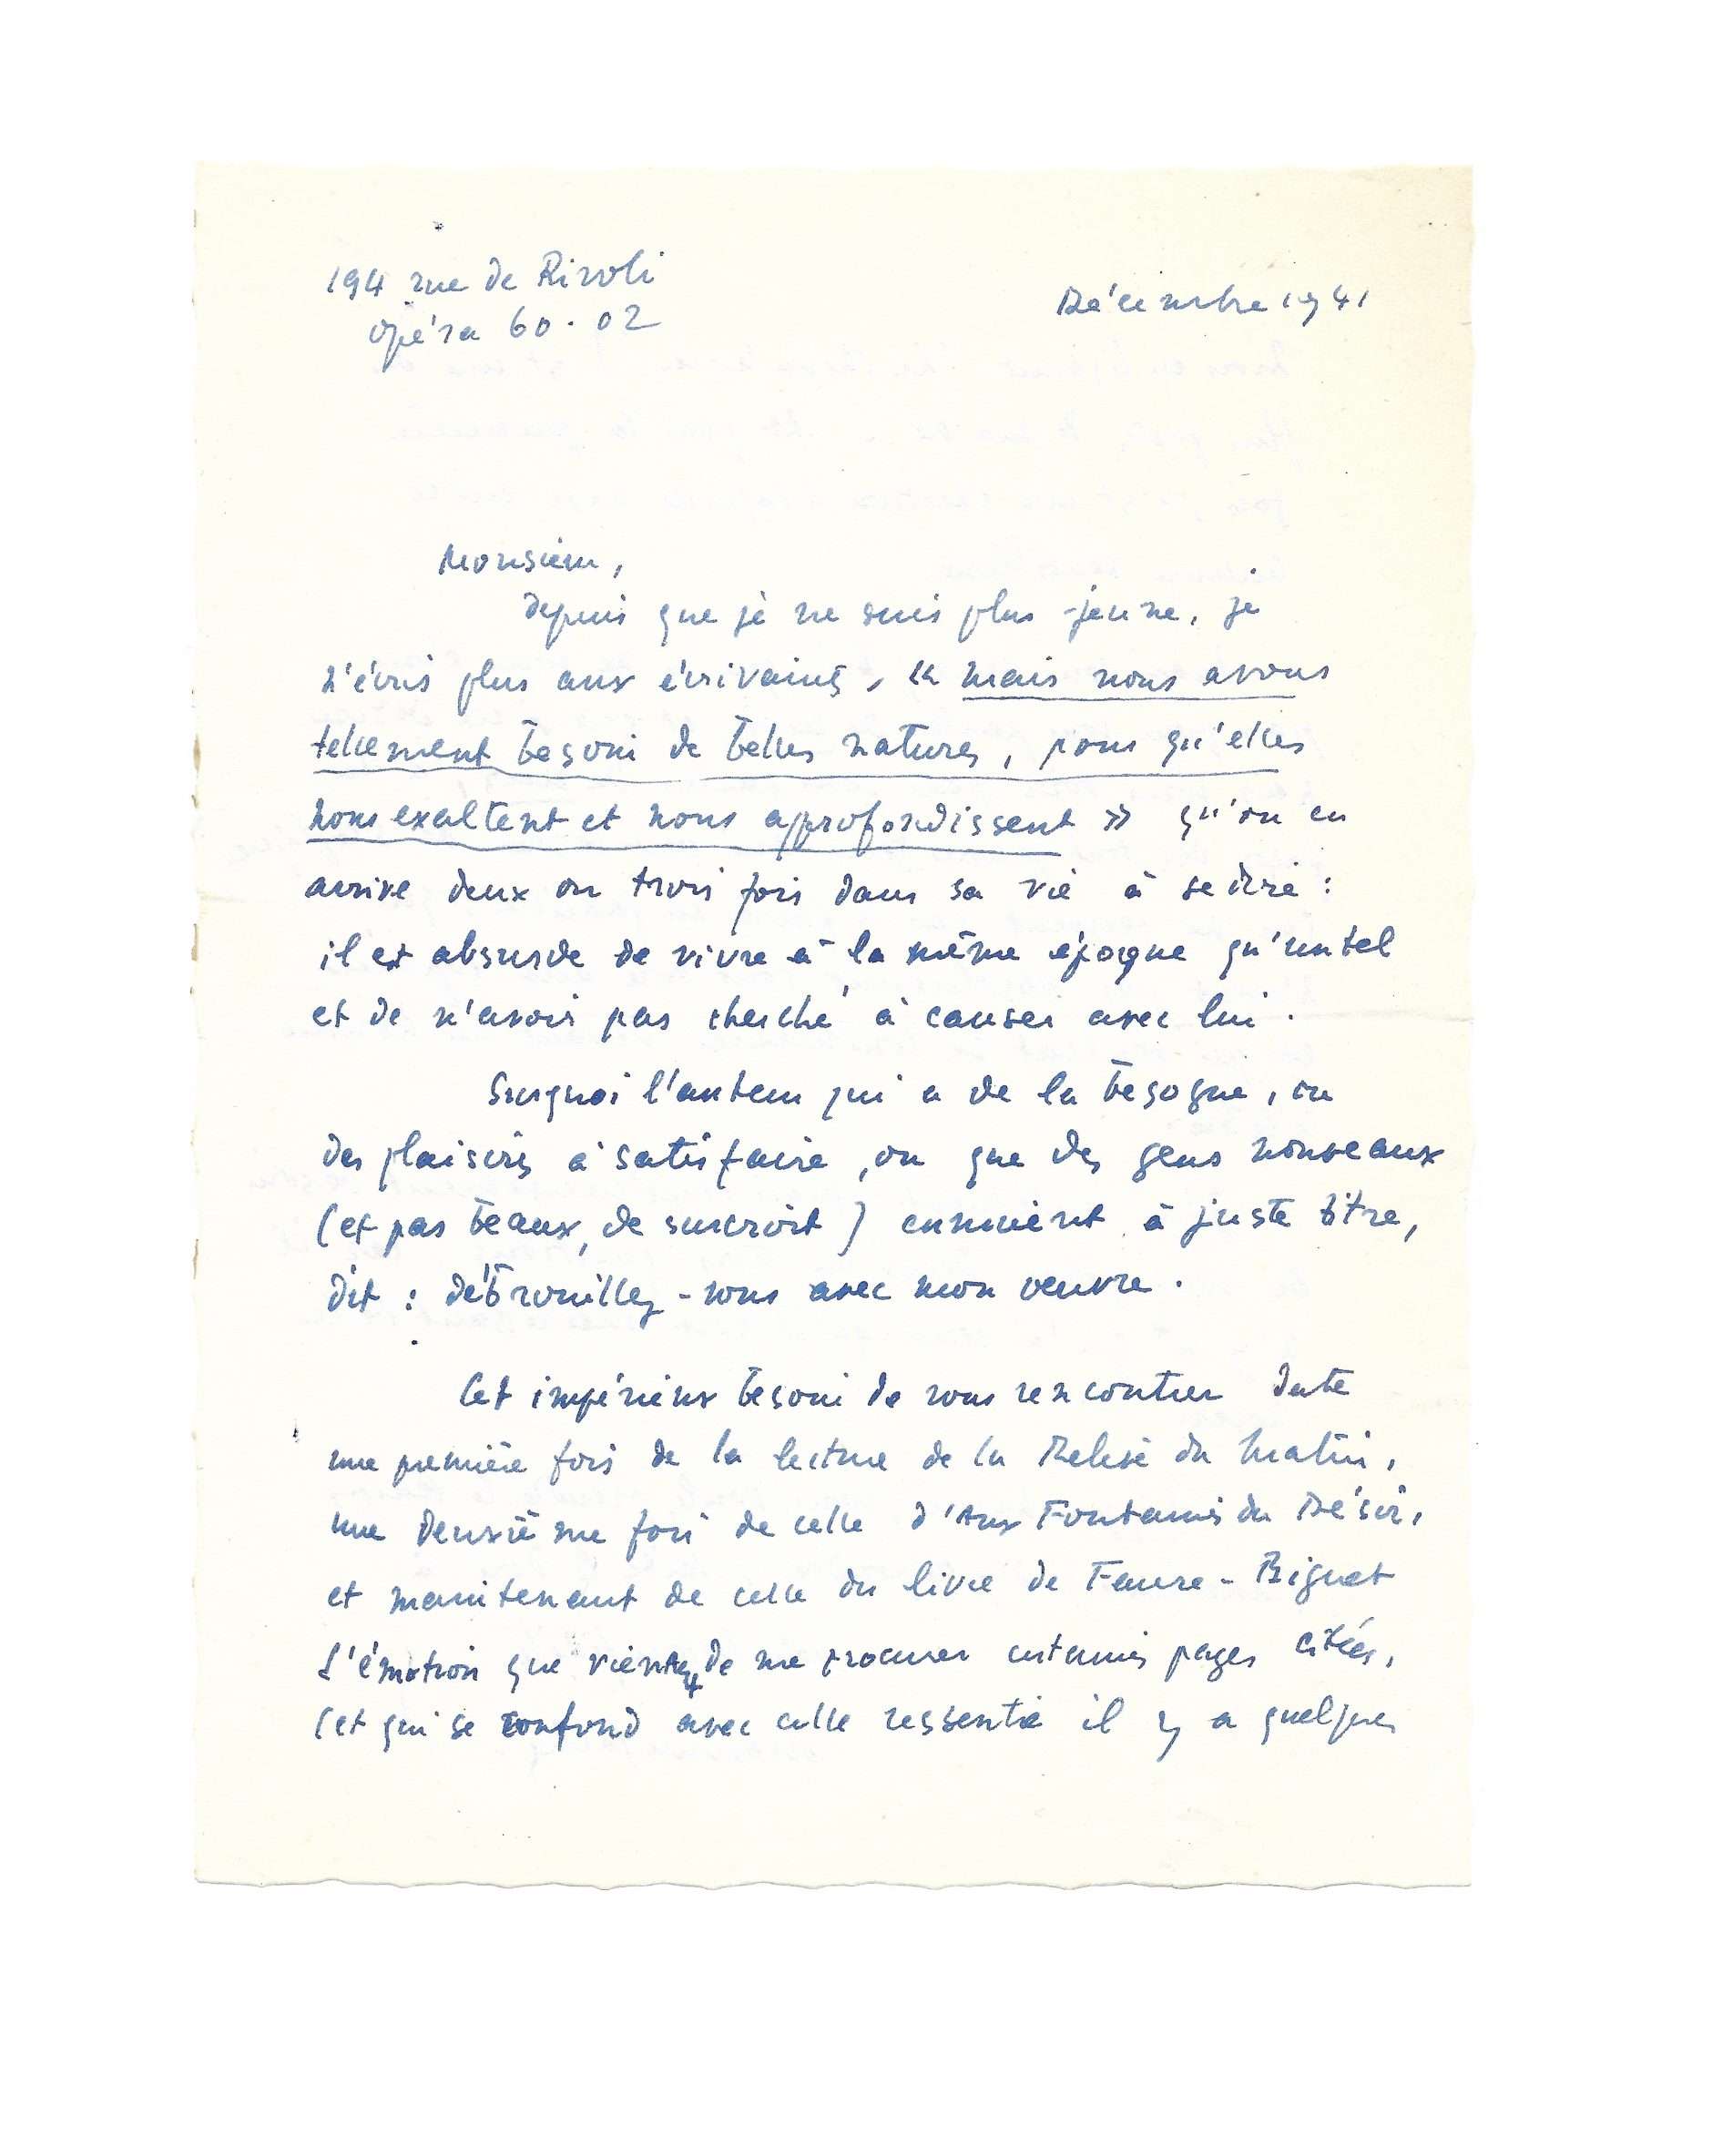 194 rue de Rivoli
Opéra 60.02
Décembre 1941
Monsieur,
depuis que je ne suis plus jeune, je
n'écris plus aux écrivains, « mais nous avons
tellement besoin de belles natures, pour qu'elles
nous exaltent et nous approfondissent » qu'on en
arrive deux ou trois fois dans sa vie à se dire :
il est absurde de vivre à la même époque qu'untel
et de n'avoir pas cherché à causer avec lui.
Surquoi l'auteur qui a de la besogne, ou
des plaisirs à satisfaire, ou que des gens nouveaux
(et pas beaux, de surcroit) ennuient à juste titre,
dit : débrouillez-vous avec mon oeuvre.
Cet impérieux besoin de vous rencontrer date
une première fois de la lecture de la Relève du Matin,
une deuxième fois de celle d'Aux Fontaines du Désir,
et maintenant de celle du livre de Faure-Biguet
L'émotion que viennent de me procurer certaines pages citées,
(et qui se confond avec celle ressentie il y a quelques